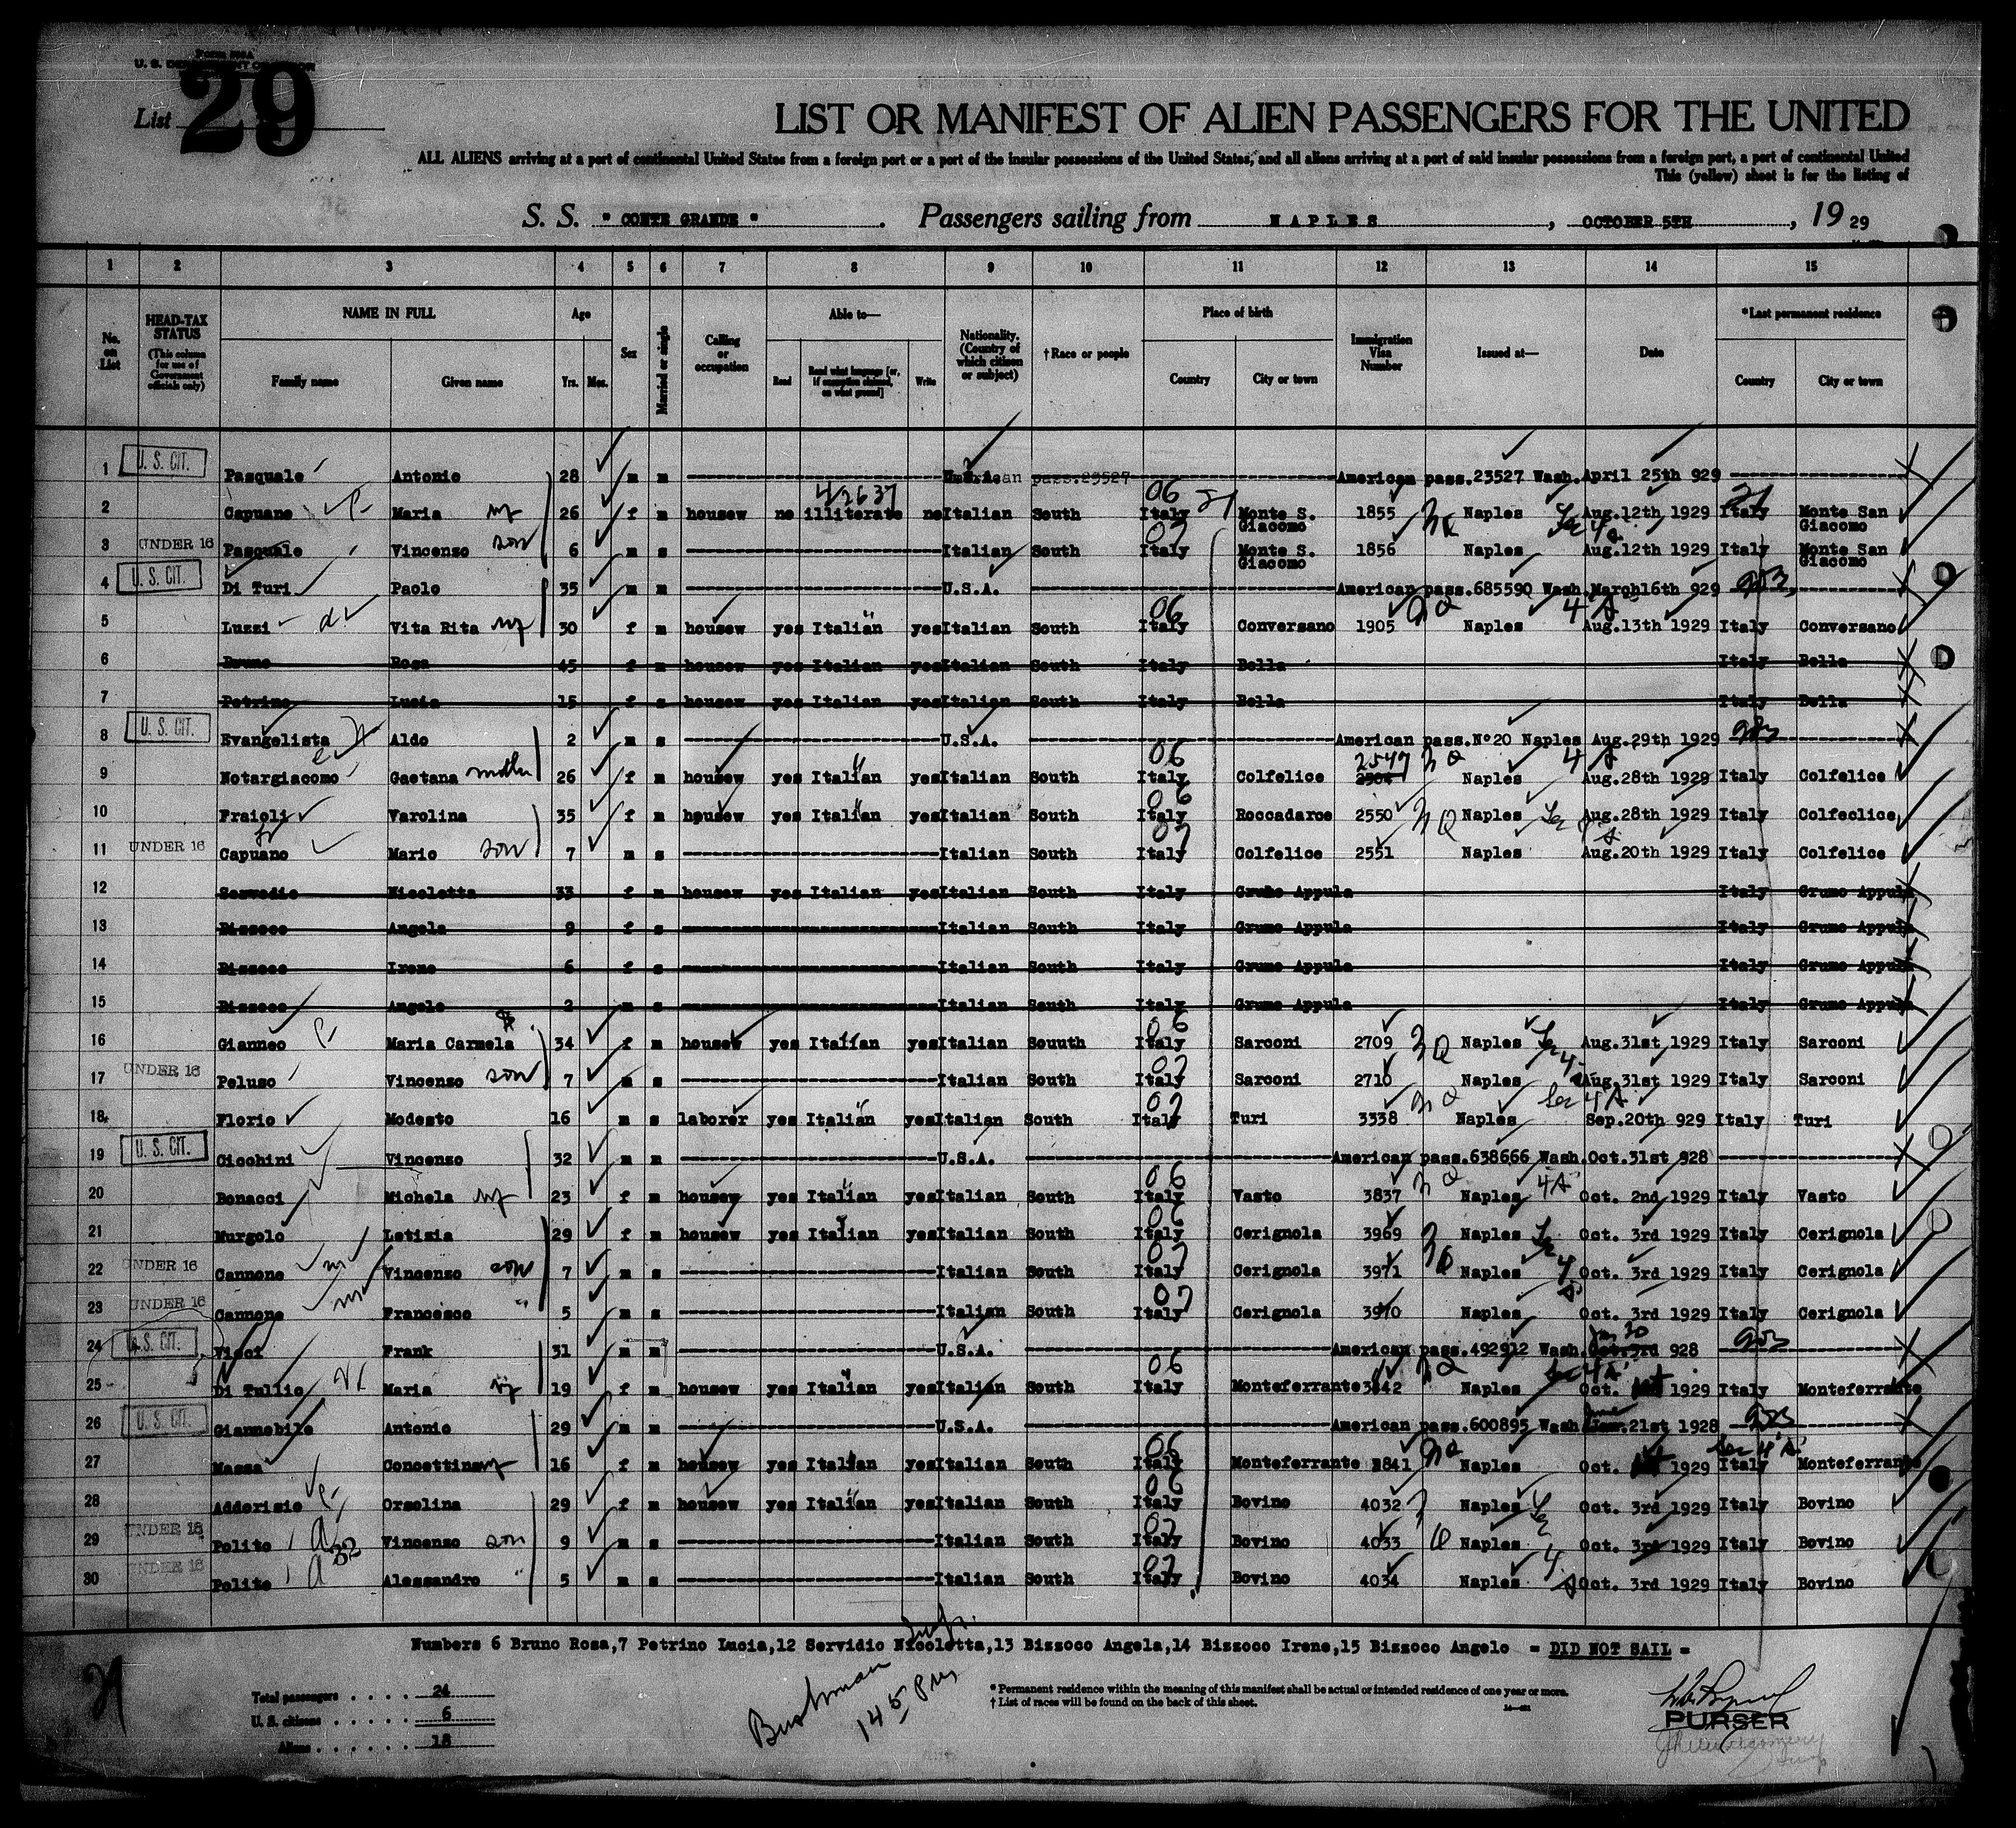 Form 500A
U. S. DEPARTMENT OF LABOR
List 29
LIST OR MANIFEST OF ALIEN PASSENGERS FOR THE UNITED
ALL ALIENS arriving at a port of continental United States from a foreign port or a port of the insular possessions of the United States, and all aliens arriving at a port of said insular possessions from a foreign port, a port of continental United
This (yellow) sheet is for the listing of
S. S. " CONTE GRANDE " . Passengers sailing from NAPLES , OCTOBER 5TH , 19 29
1 2 3 4 5 6 7 8 9 10 11 12 13 14 15
No. on List HEAD-TAX STATUS (This column for use of Government officials only) NAME IN FULL Age Sex Married or single Calling or occupation Able to— Nationality. (Country of which citizen or subject) †Race or people Place of birth Immigration Visa Number Issued at— Date *Last permanent residence
Family name Given name Yrs. Mos. Read Read what language [or, if exemption claimed, on what ground] Write Country City or town Country City or town
1 U. S. CIT. Pasquale Antonio 28 m m American pass.23527 Wash. April 25th 929
42637
2 Capuano Maria wf 26 f m housew no illiterate no Italian South 06 Italy Monte S. Giacomo 1855 Naples Aug.12th 1929 Italy Monte San Giacomo
3 UNDER 16 Pasquale Vincenzo son 6 m s Italian South 07 Italy Monte S. Giacomo 1856 Naples Aug.12th 1929 Italy Monte San Giacomo
4 U. S. CIT. Di Turi Paolo 35 m m U.S.A. American pass.685590 Wash. March16th 929
5 Luzzi Vita Rita wf 30 f m housew yes Italian yes Italian South 06 Italy Conversano 1905 Naples Aug.13th 1929 Italy Conversano
6 Bruno Rosa 45 f m housew yes Italian yes Italian South Italy Bella Italy Bella
7 Petrino Lucia 15 f s housew yes Italian yes Italian South Italy Bella Italy Bella
8 U. S. CIT. Evangelista Aldo 2 m s U.S.A. American pass.Nº20 Naples Aug.29th 1929
9 Notargiacomo Gaetana mother 26 f m housew yes Italian yes Italian South 06 Italy Colfelice 2547 Naples Aug.28th 1929 Italy Colfelice
10 Fraioli Varolina 35 f m housew yes Italian yes Italian South 06 Italy Roccadarce 2550 Naples Aug.28th 1929 Italy Colfeclice
11 UNDER 16 Capuano Mario son 7 m s Italian South 07 Italy Colfelice 2551 Naples Aug.20th 1929 Italy Colfelice
12 Servedio Nicoletta 33 f m housew yes Italian yes Italian South Italy Grumo Appula Italy Grumo Appula
13 Bizzoco Angela 9 f s Italian South Italy Grumo Appula Italy Grumo Appula
14 Bizzoco Irene 6 f s Italian South Italy Grumo Appula Italy Grumo Appula
15 Bizzoco Angelo 2 m s Italian South Italy Grumo Appula Italy Grumo Appula
16 Gianneo Maria Carmela 34 f m housew yes Italian yes Italian Souuth 06 Italy Sarconi 2709 Naples Aug.31st 1929 Italy Sarconi
17 UNDER 16 Peluso Vincenzo son 7 m s Italian South 07 Italy Sarconi 2710 Naples Aug.31st 1929 Italy Sarconi
18 Florio Modesto 16 m s laborer yes Italian yes Italian South 07 Italy Turi 3338 Naples Sep.20th 929 Italy Turi
19 U. S. CIT. Cicchini Vincenzo 32 m m U.S.A. American pass.638666 Wash. Oct.31st 928
20 Bonacci Michela wf 23 f m housew yes Italian yes Italian South 06 Italy Vasto 3837 Naples Oct. 2nd 1929 Italy Vasto
21 Murgolo Letizia 29 f m housew yes Italian yes Italian South 06 Italy Cerignola 3969 Naples Oct. 3rd 1929 Italy Cerignola
22 UNDER 16 Cannone Vincenzo son 7 m s Italian South 07 Italy Cerignola 3971 Naples Oct. 3rd 1929 Italy Cerignola
23 UNDER 16 Cannone Francesco " 5 m s Italian South 07 Italy Cerignola 3970 Naples Oct. 3rd 1929 Italy Cerignola
24 U. S. CIT. Vicci Frank 31 m m U.S.A. American pass.492912 Wash. Jan 30 928
25 Di Tullio Maria wf 19 f m housew yes Italian yes Italian South 06 Italy Monteferrante 3842 Naples Oct. 1929 Italy Monteferrante
26 U. S. CIT. Giannobile Antonio 29 m m U.S.A. American pass.600895 Wash. June 21st 1928
27 Massa Concettina wf 16 f m housew yes Italian yes Italian South 06 Italy Monteferrante 3841 Naples Oct. 1929 Italy Monteferrante
28 Adderisio Orsolina 29 f m housew yes Italian yes Italian South 06 Italy Bovino 4032 Naples Oct. 3rd 1929 Italy Bovino
29 UNDER 16 Polito Vincenzo son 9 m s Italian South 07 Italy Bovino 4033 Naples Oct. 3rd 1929 Italy Bovino
30 UNDER 16 Polito Alessandro " 5 m s Italian South 07 Italy Bovino 4034 Naples Oct. 3rd 1929 Italy Bovino
Numbers 6 Bruno Rosa,7 Petrino Lucia,12 Servidio Nicoletta,13 Bizzoco Angela,14 Bizzoco Irene,15 Bizzoco Angelo = DID NOT SAIL =
Total passengers . . . . 24
U. S. citizens . . . . . 6
Aliens . . . . . . 18
* Permanent residence within the meaning of this manifest shall be actual or intended residence of one year or more.
† List of races will be found on the back of this sheet.
PURSER